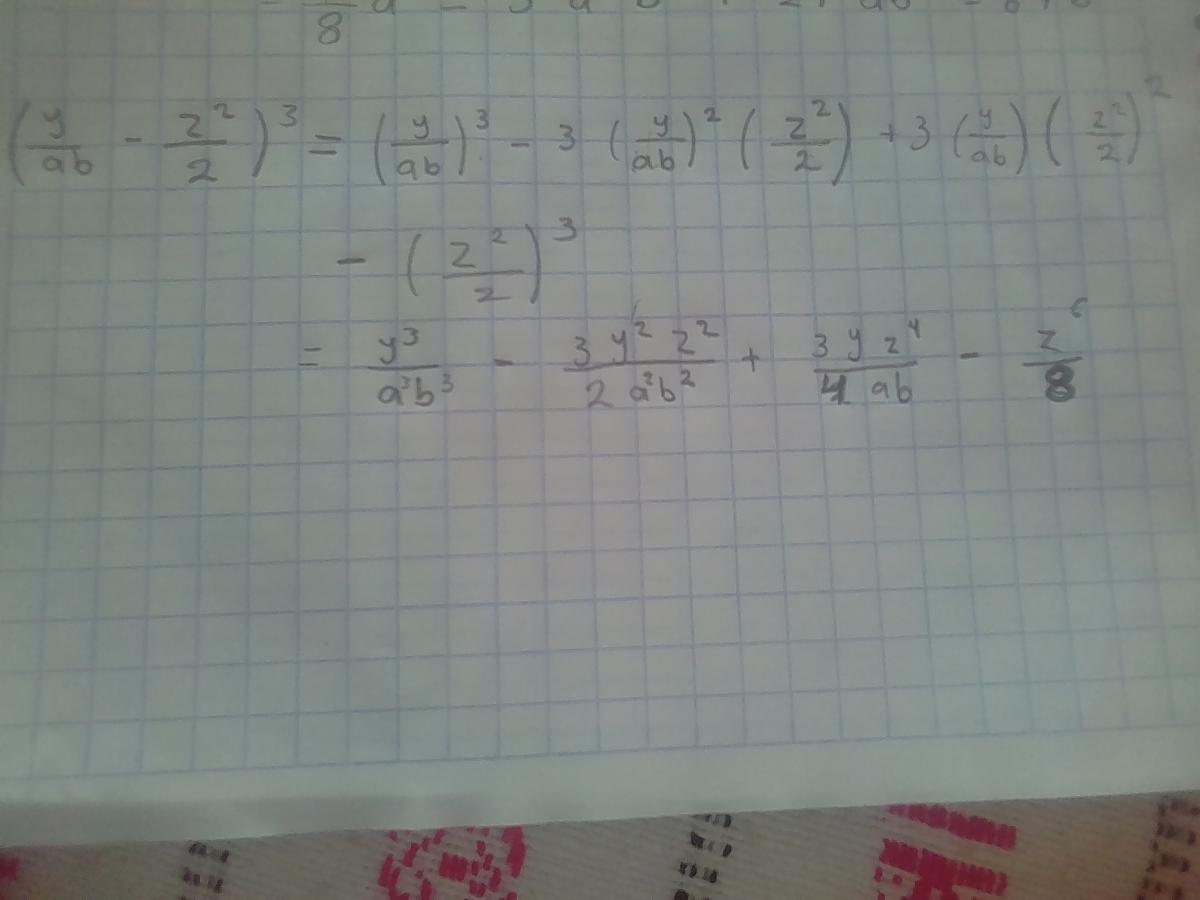 8
(y/ab - z²/2)³ = (y/ab)³ - 3 (y/ab)² (z²/2) + 3 (y/ab) (z²/2)²
- (z²/2)³
= y³/a³b³ - 3 y² z²/2 a²b² + 3 y z⁴/4 ab - z⁶/8